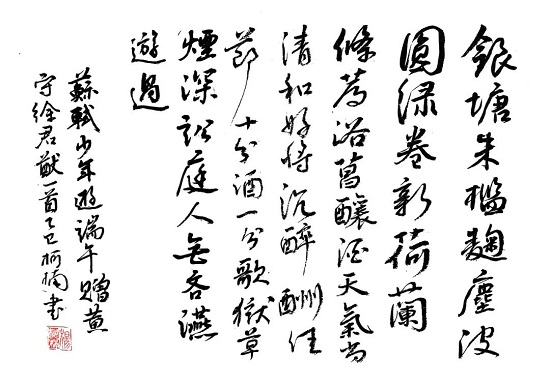 銀塘朱檻麴塵波
圓绿卷新荷蘭
條荐浴菖釀酒天氣尚
清和好將沉醉酬佳
節十分酒一分歌獄草
煙深訟庭人无吝讌
遊過
蘇軾少年遊端午贈黄
守徐君猷一首乙巳柯楠書